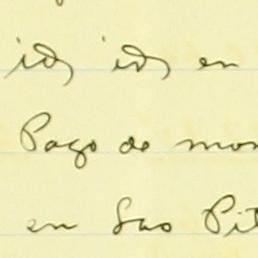 id, id, en
Pago de mon
en Sao Pit